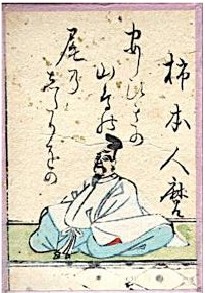 柿本人麿
あし引きの
山鳥の
尾の
しだりをの